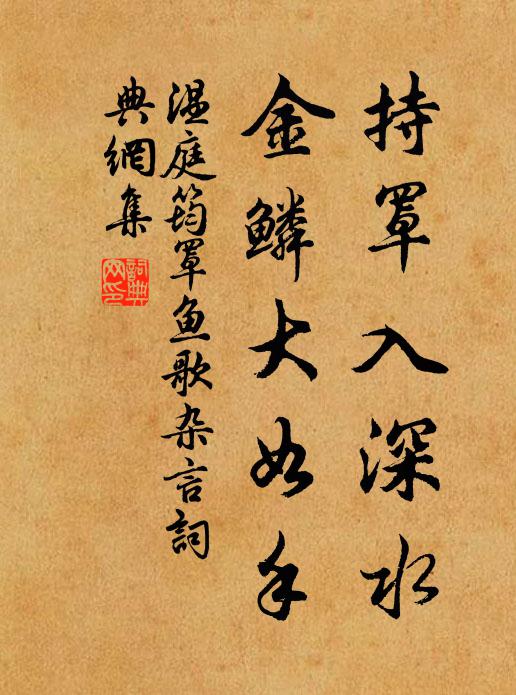 持罩入深水
金鳞大如手
温庭筠罩鱼歌杂言词
典網集
詞典網印